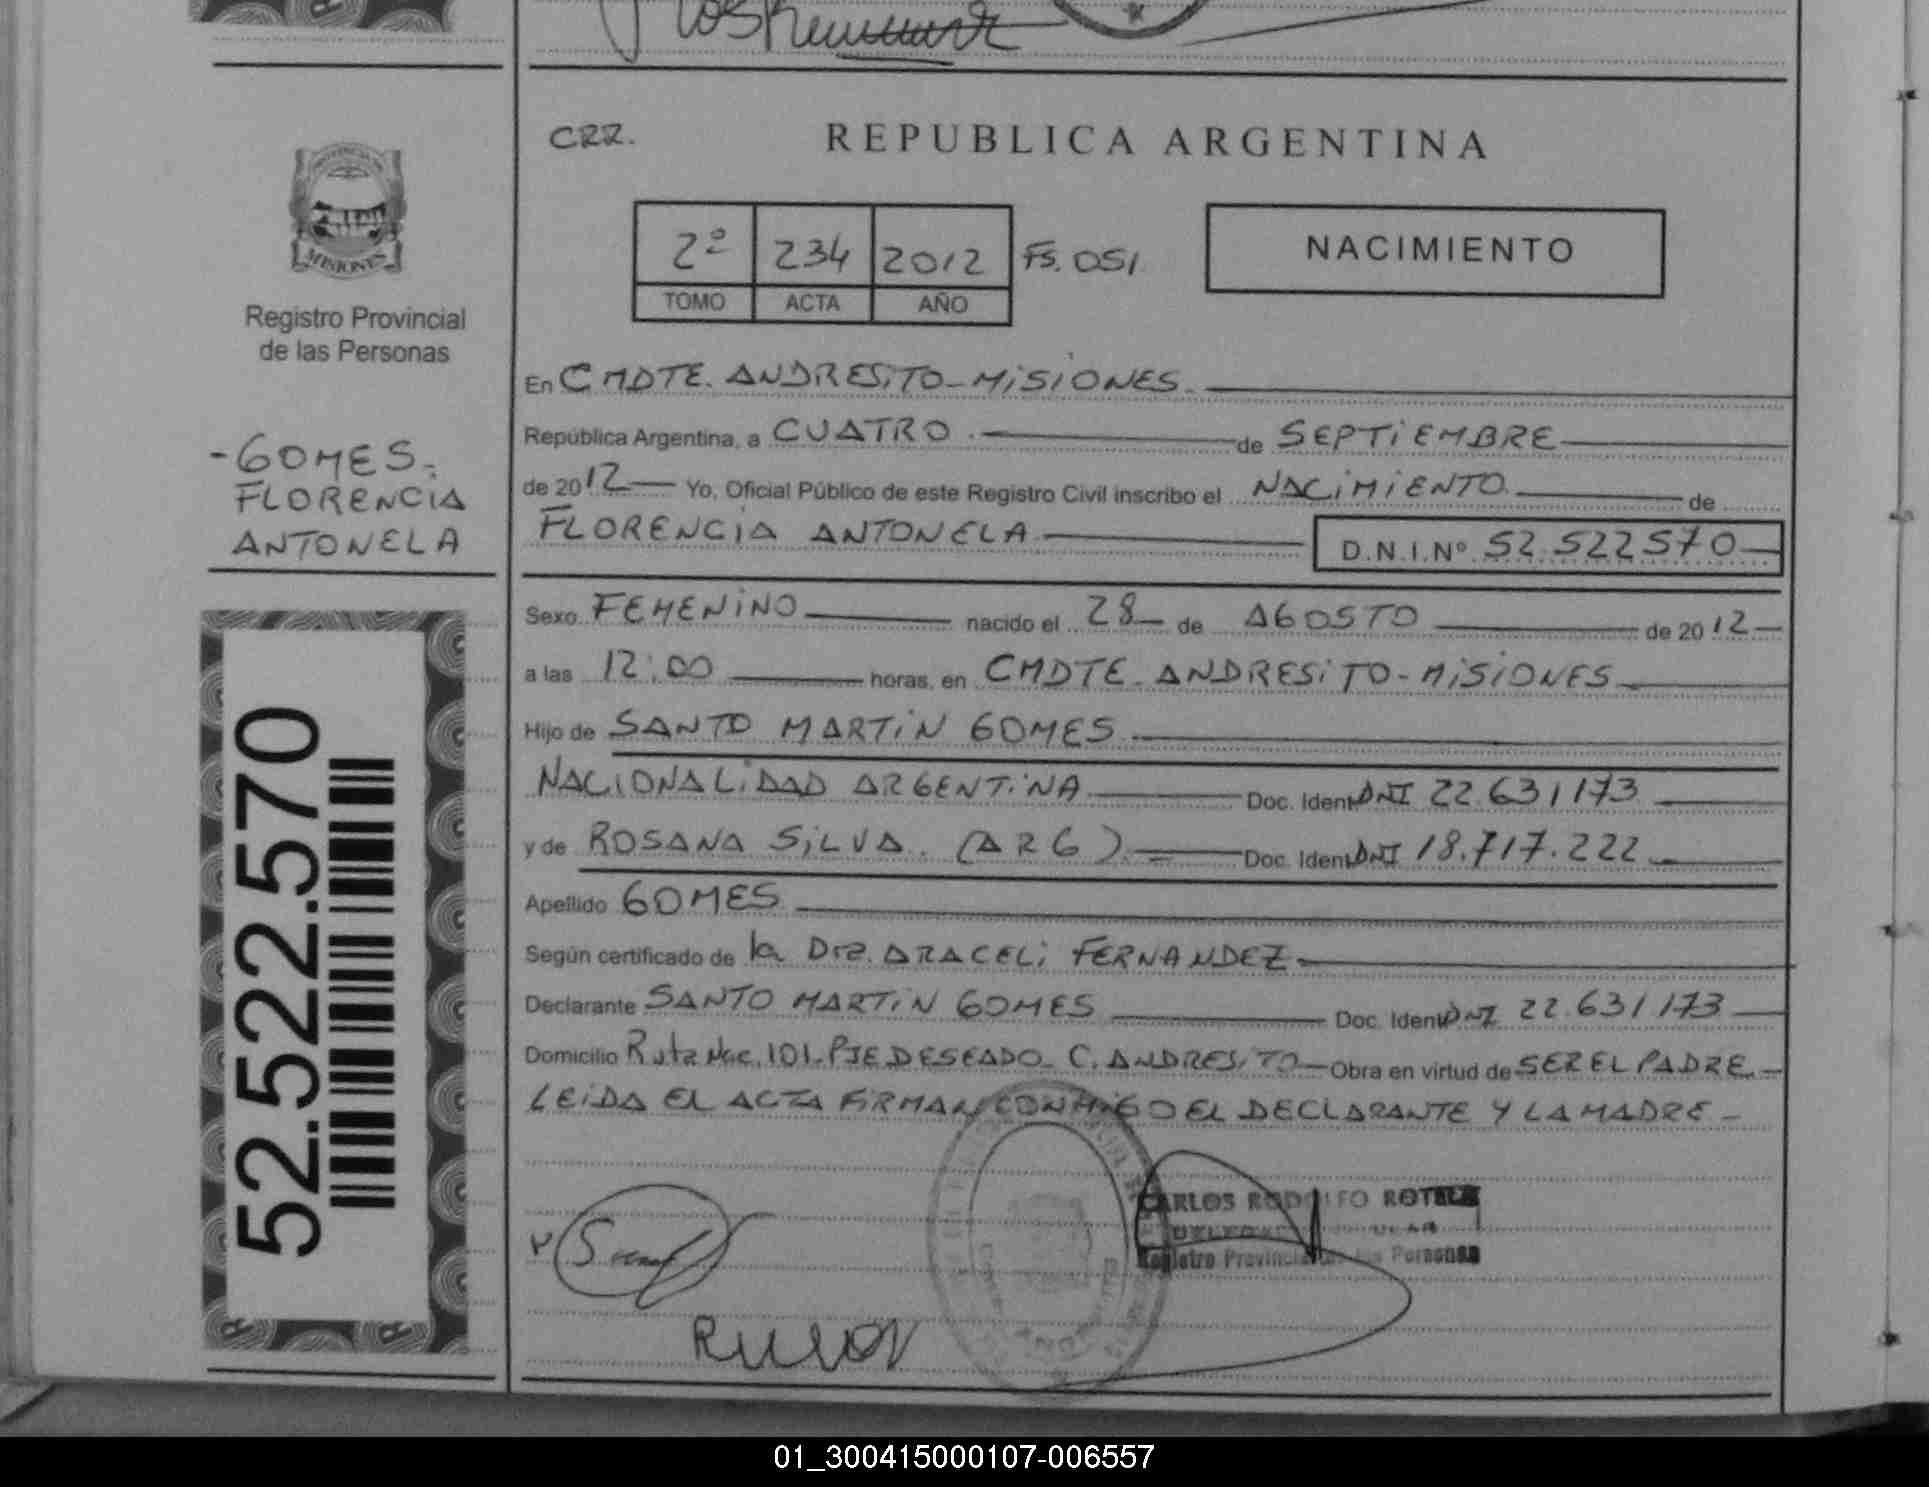 CRR.
REPUBLICA ARGENTINA
2º 234 2012 Fs. 051
TOMO ACTA AÑO
NACIMIENTO
MISIONES
Registro Provincial
de las Personas
-GOMES.
FLORENCIA
ANTONELA
52.522.570
En CMDTE. ANDRESITO-MISIONES.
República Argentina, a CUATRO. de SEPTIEMBRE
de 2012 Yo, Oficial Público de este Registro Civil inscribo el NACIMIENTO. de
FLORENCIA ANTONELA D.N.I.Nº 52.522570
Sexo FEMENINO nacido el 28 de AGOSTO de 2012
a las 12:00 horas, en CMDTE. ANDRESITO-MISIONES
Hijo de SANTO MARTIN GOMES
NACIONALIDAD ARGENTINA Doc. Ident DNI 22.631173
y de ROSANA SILVA. (ARG) Doc. Ident DNI 18.717.222
Apellido GOMES
Según certificado de la Dra. ARACELI FERNANDEZ
Declarante SANTO MARTIN GOMES Doc. Ident DNI 22.631173
Domicilio Ruta Nac. 101-PJE DESEADO-C. ANDRESITO Obra en virtud de SER EL PADRE
LEIDA EL ACTA FIRMAN CONMIGO EL DECLARANTE Y LA MADRE
CARLOS RODOLFO ROTELA
Registro Provincial de las Personas
01_300415000107-006557